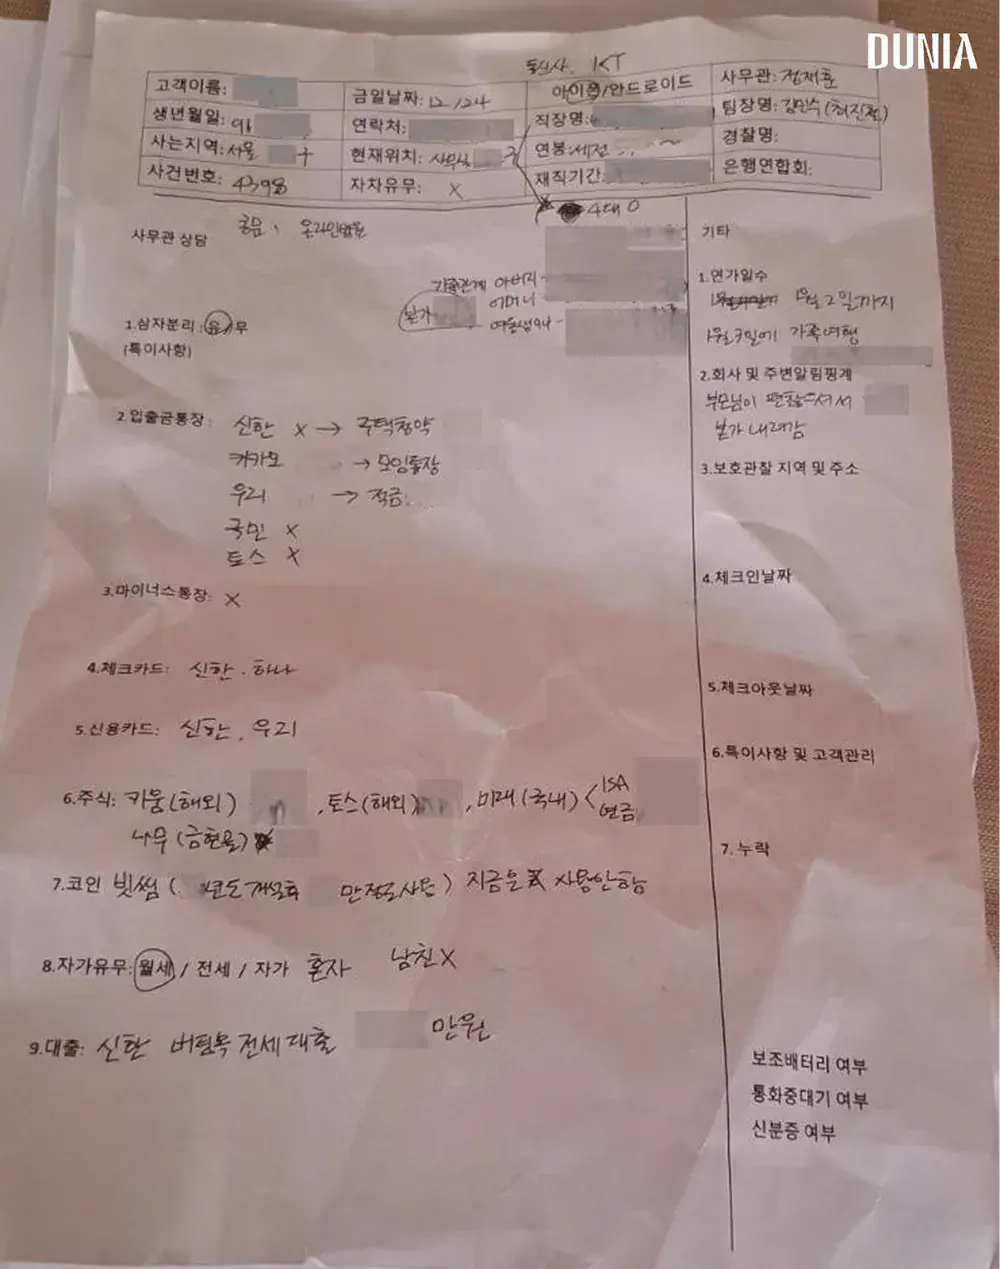 DUNIA
통신사. KT
고객이름: 금일날짜: 12/24 아이폰/안드로이드 사무관: 정재훈
생년월일: 91 연락처: 직장명: 팀장명: 김민수(최진철)
사는지역: 서울 구 현재위치: 사무실 구 연봉: 세전 경찰명:
사건번호: 4398 자차유무: X 재직기간: 은행연합회:
4대 O
사무관 상담
기타
가족관계 아버지-
어머니
본가 여동생
1.삼자분리: 유/무
(특이사항)
2.입출금통장: 신한 X → 주택청약
카카오 → 모임통장
우리 → 적금
국민 X
토스 X
3.마이너스통장: X
4.체크카드: 신한. 하나
5.신용카드: 신한. 우리
6.주식: 키움(해외) , 토스(해외) , 미래(국내) < ISA
연금
나무(금현물)
7.코인 빗썸( 년도 개설후 만정도사용) 지금은 사용안함
8.자가유무: 월세 / 전세 / 자가 혼자 남친X
9.대출: 신한 버팀목 전세대출 만원
1.연가일수
1월2일까지
가족여행
2.회사 및 주변알림핑계
부모님이 편찮으셔서
본가 내려감
3.보호관찰 지역 및 주소
4.체크인날짜
5.체크아웃날짜
6.특이사항 및 고객관리
7. 누락
보조배터리 여부
통화중대기 여부
신분증 여부